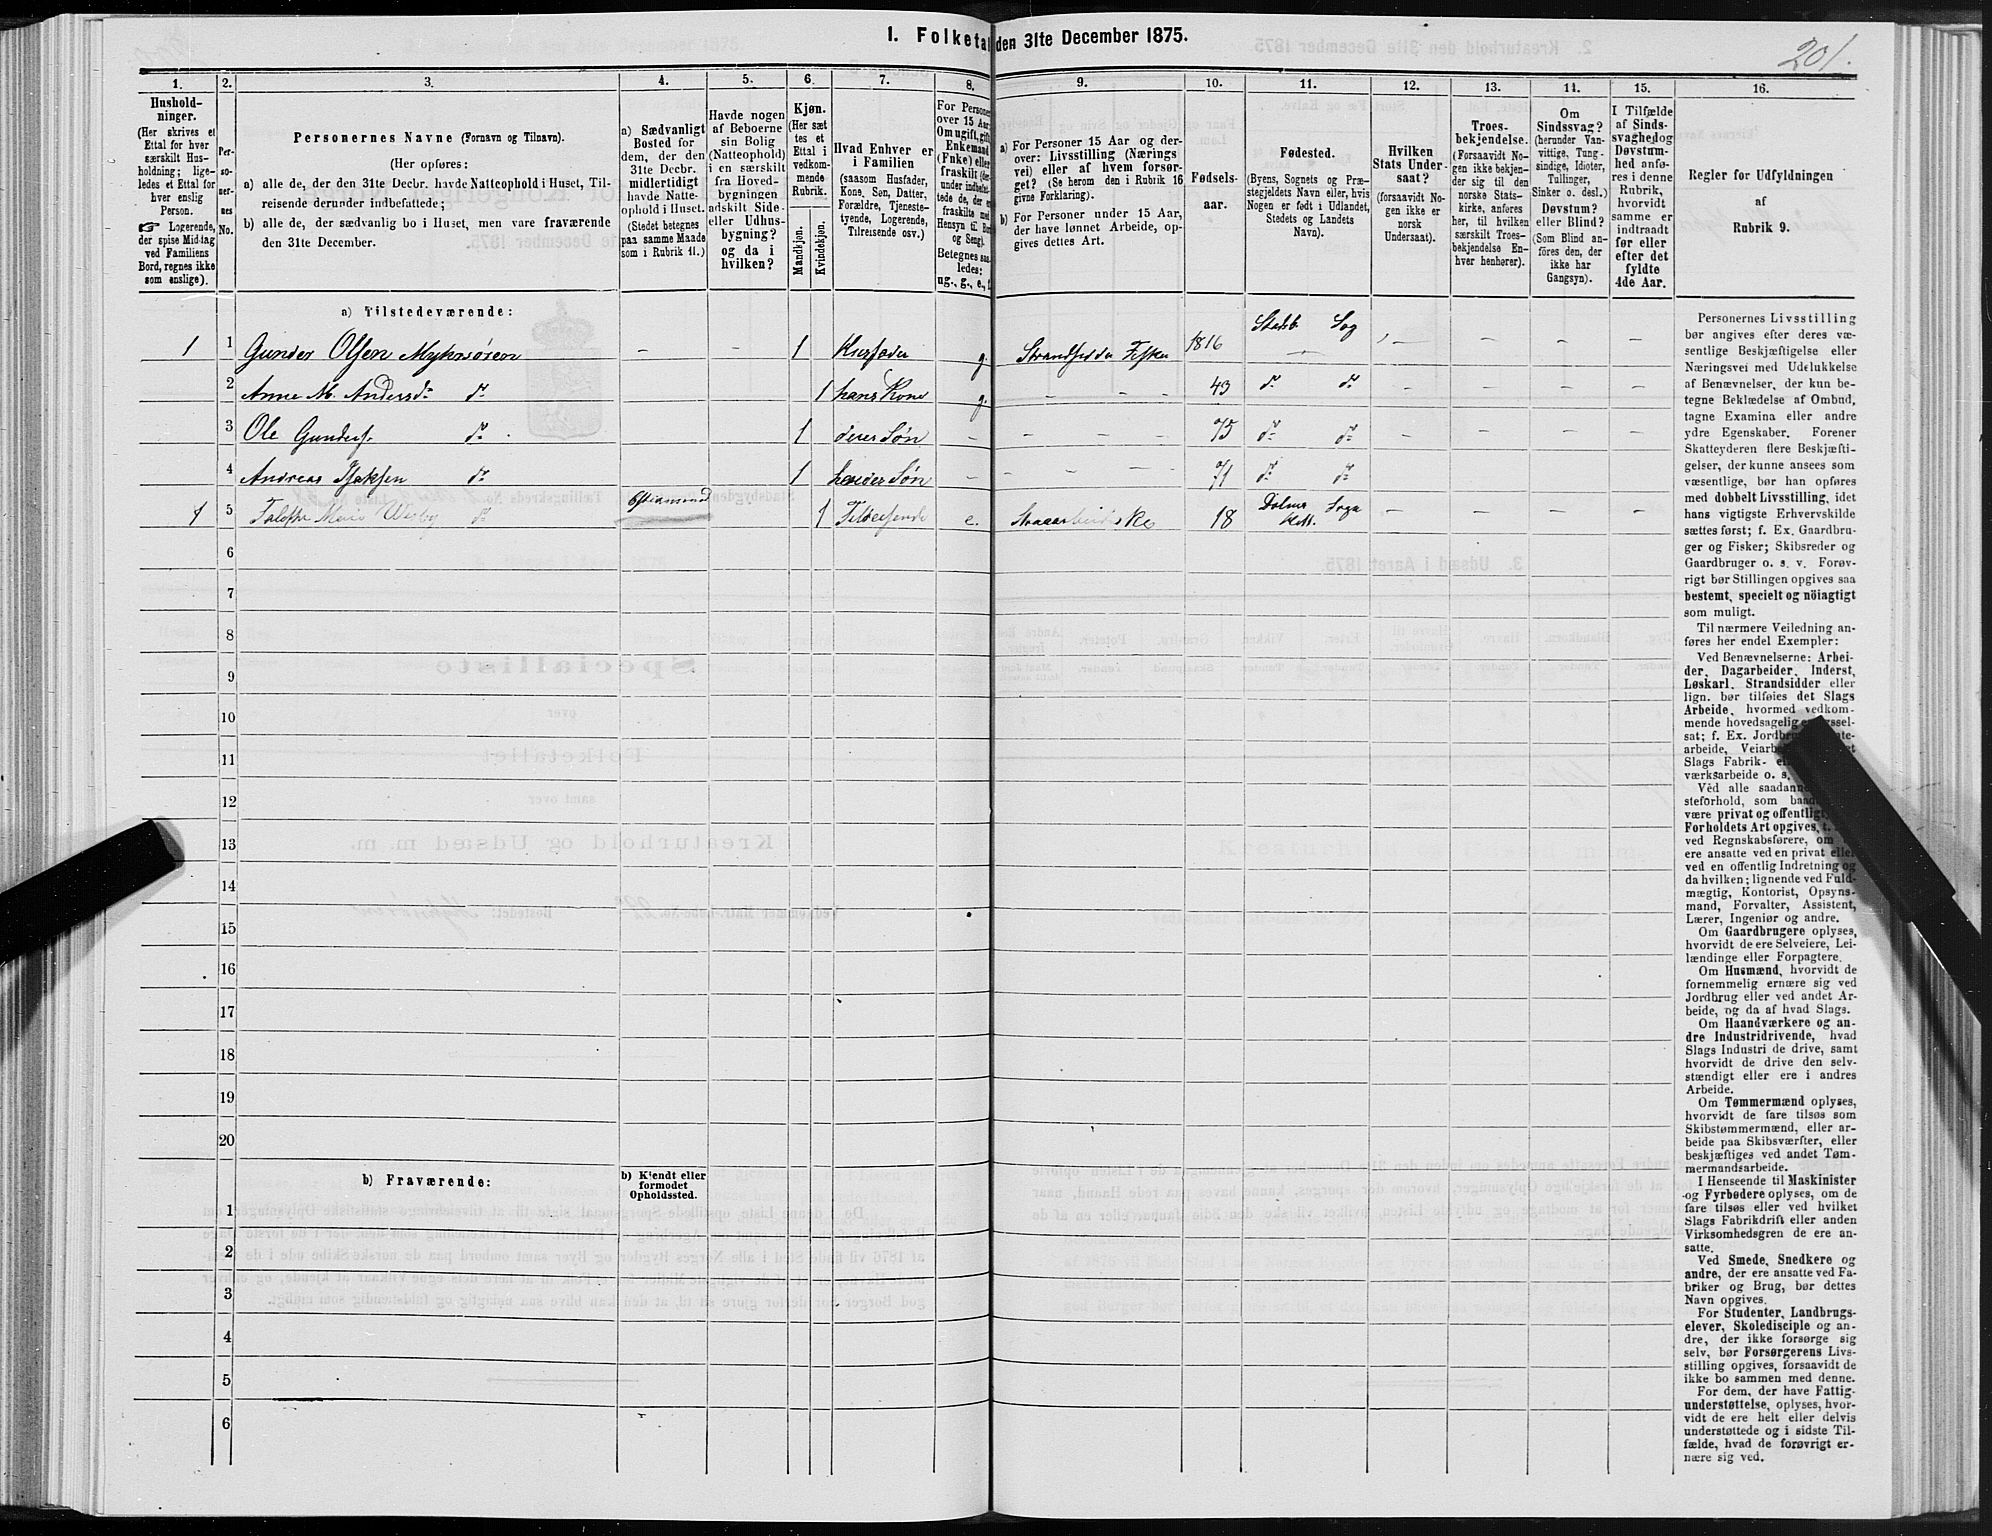 1. Folketal den 31te December 1875.
201.
1.
2.
3.
4.
5.
6.
7.
8.
9.
10.
11.
12.
13.
14.
15.
16.
Hushold-
ninger.
(Her skrives et
Ettal for hver
særskilt Hus-
holdning; lige-
ledes et Ettal for
hver enslig
Person.
☞ Logerende,
der spise Middag
ved Familiens
Bord, regnes ikke
som enslige).
Per-
so-
ner-
nes
No.
Personernes Navne (Fornavn og Tilnavn).
(Her opføres:
a) alle de, der den 31te Decbr. havde Natteophold i Huset, Til-
reisende derunder indbefattede;
b) alle de, der sædvanlig bo i Huset, men vare fraværende
den 31te December.
a) Sædvanligt
Bosted for
dem, der den
31te Decbr.
midlertidigt
havde Natte-
ophold i Huset.
(Stedet betegnes
paa samme Maade
som i Rubrik 11.)
Havde nogen
af Beboerne
sin Bolig
(Natteophold)
i en særskilt
fra Hoved-
bygningen
adskilt Side-
eller Udhus-
bygning?
og da i
hvilken?
Kjøn.
(Her sæt
tes et
Ettal i
vedkom-
mende
Rubrik.
Mandkjøn.
Kvindekjøn.
Hvad Enhver er
i Familien
(saasom Husfader,
Kone, Søn, Datter,
Forældre, Tjeneste-
tyende, Logerende,
Tilreisende osv.)
For Personer
over 15 Aar:
Om ugift, gift,
Enkemand
(Enke) eller
fraskilt (der-
under indbefat-
tede de, der er
fraskilte med
Hensyn til Bord
og Seng).
Betegnes saa-
ledes:
ug., g., e.,
a) For Personer 15 Aar og der-
over: Livsstilling (Nærings
vei) eller af hvem forsør-
get? (Se herom den i Rubrik 16
givne Forklaring).
b) For Personer under 15 Aar,
der have lønnet Arbeide, op-
gives dettes Art.
Fødsels-
aar.
Fødested.
(Byens, Sognets og Præ-
stegjeldets Navn eller, hvis
Nogen er født i Udlandet,
Stedets og Landets
Navn).
Hvilken
Stats Under-
saat?
(forsaavidt No-
gen ikke er
norsk
Undersaat).
Troes-
bekjendelse.
(Forsaavidt No-
gen ikke bekjen-
der sig til den
norske Stats-
kirke, anføres
her, til hvilken
særskilt Troes-
bekjendelse En-
hver henhører).
Om
Sindssvag?
(herunder Van-
vittige, Tung-
sindige, Idioter,
Tullinger,
Sinker o. desl.)
Døvstum?
eller Blind?
(Som Blind an-
føres den, der
ikke har
Gangsyn).
I Tilfælde
af Sinds-
svaghed og
Døvstum-
hed anfø-
res i denne
Rubrik,
hvorvidt
samme er
indtraadt
før eller
efter det
fyldte
4de Aar.
Regler for Udfyldningen
af
Rubrik 9.
a) Tilstedeværende:
1 1 Gunder Olsen Myhrsøren – – 1 g. 1816 Stadsb. Sog – – – –
2 Anne M. Andersd. do 1 hans Kone g. – – – 43 do do – – – –
3 Ole Gunders. do 1 deres Søn – – – – 75 do do – – – –
4 Andreas Isaksen do 1 hendes Søn – – – – 71 do do – – – –
1 5 do 1 e. 18 – – – –
6
7
8
9
10
11
12
13
14
15
16
17
18
19
20
b) Fraværende:
b) Kjendt eller
formodet
Opholdssted.
1
2
3
4
5
6
Personernes Livsstilling
bør angives efter deres væ-
sentlige Beskjæftigelse eller
Næringsvei med Udelukkelse
af Benævnelser, der kun be-
tegne Beklædelse af Ombud,
tagne Examina eller andre
ydre Egenskaber. Forener
Skatteyderen flere Beskjæfti-
gelser, der kunne ansees som
væsentlige, bør han opføres
med dobbelt Livsstilling, idet
hans vigtigste Erhvervskilde
sættes først; f. Ex. Gaardbru-
ger og Fisker; Skibsreder og
Gaardbruger o. s. v. Forøv-
rigt bør Stillingen opgives saa
bestemt, specielt og nöiagtigt
som muligt.
Til nærmere Veiledning an-
føres her endel Exempler:
Ved Benævnelserne: Arbei-
der, Dagarbeider, Inderst,
Løskarl, Strandsidder eller
lign. bør tilføies det Slags
Arbeide, hvormed vedkom-
mende hovedsagelig
sat; f. Ex.
arbeide,
Slags Fabrik-
værksarbeide o. s.
Ved alle
steforhold, som
være privat og offentligt,
Forholdets Art opgives,
ved Regnskabsførere, om
ere ansatte ved en privat eller
ved en offentlig Indretning og
da hvilken; lignende ved Fuld-
mægtig, Kontorist, Opsyns-
mand, Forvalter, Assistent,
Lærer, Ingeniør og andre.
Om Gaardbrugere oplyses,
hvorvidt de ere Selveiere, Lei-
lændinge eller Forpagtere.
Om Husmænd, hvorvidt de
fornemmelig ernære sig ved
Jordbrug eller ved andet Ar-
beide, og da af hvad Slags.
Om Haandværkere og an-
dre Industridrivende, hvad
Slags Industri de drive, samt
hvorvidt de drive den selv-
stændigt eller ere i andres
Arbeide.
Om Tømmermænd oplyses,
hvorvidt de fare tilsøs som
Skibstømmermænd, eller ar-
beide paa Skibsværfter, eller
beskjæftiges ved andet Tøm-
mermandsarbeide.
I Henseende til Maskinister
og Fyrbødere oplyses, om de
fare tilsøs eller ved hvilket
Slags Fabrikdrift eller anden
Virksomhedsgren de ere an-
satte.
Ved Smede, Snedkere og
andre, der ere ansatte ved Fa-
briker og Brug, bør dettes
Navn opgives.
For Studenter, Landbrugs-
elever, Skoledisciple og an-
dre, der ikke forsørge sig
selv, bør Forsørgerens Livs-
stilling opgives, forsaavidt de
ikke bo sammen med denne.
For dem, der have Fattig-
understøttelse, oplyses, hvor-
vidt de ere helt eller delvis
understøttede og i sidste Til-
fælde, hvad de forøvrigt er-
nære sig ved.